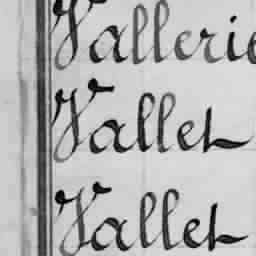 Vallerie
Vallet
Vallet